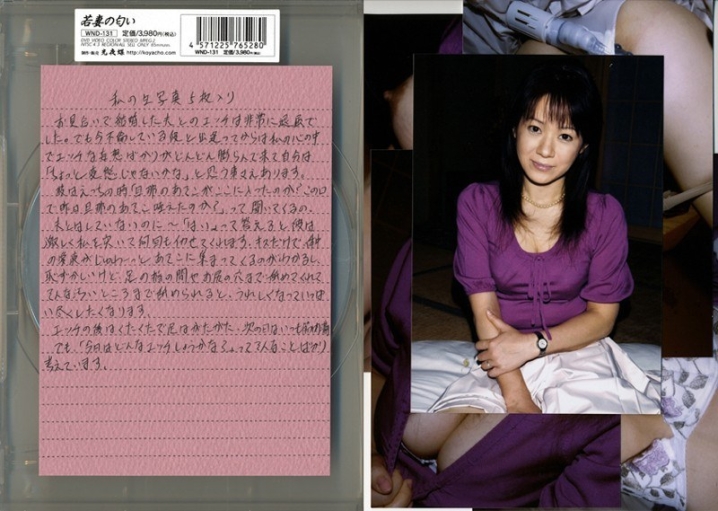 若妻の匂い
WND-131 定価/3,980円(税込)
DVD VIDEO COLOR STEREO MPEG-2
http://koyacho.com
4 571225 765280
WND-131 定価/3,980円(税込)
私の生写真5枚入り
お見合いで結婚した夫とのエッチは非常に最低で
した。でも今不倫している彼と出逢ってからは私の心の中
でエッチな妄想ばかりがどんどん膨らんで来て自分は
「ちょっと変態じゃないかな」と思う事さえあります。
彼はえっちの時「旦那のあそこがここに入ったのか？この口
で昨日旦那のあそこ咥えたのか？」って聞いてくるの。
夫とはしていないのに〜「はい」って答えると彼は
激しく私を突いて何回も
恥ずかしいけど、足の指の間やお尻の穴まで舐めてくれて
そんな汚いところまで舐められると、うれしくなっていっぱい
尽くしたくなります。
エッチの後はくたくたで足はがたがた、次の日はいつも
でも、「今日はどんなエッチしようかな」ってそんなことばかり
考えています。